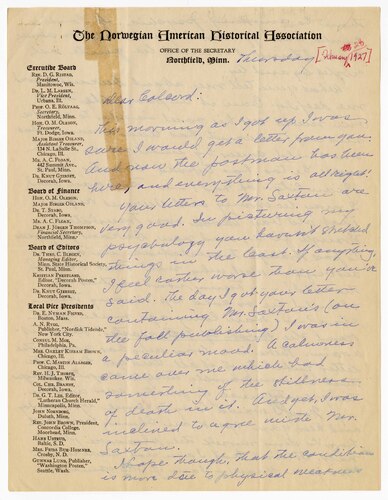 The Norwegian American Historical Association
OFFICE OF THE SECRETARY
Northfield, Minn.
Thursday
[February 1927]
Executive Board
REV. D. G. RISTAD,
President,
Manitowoc, Wis.
DR. L. M. LARSEN,
Vice President,
Urbana, Ill.
PROF. O. E. RÖLVAAG,
Secretary,
Northfield, Minn.
HON. O. M. OLESON,
Treasurer,
Ft. Dodge, Iowa.
MAJOR BIRGER OSLAND,
Assistant Treasurer,
134 N. LaSalle St.,
Chicago, Ill.
MR. A. C. FLOAN,
442 Summit Ave.,
St. Paul, Minn.
DR. KNUT GJERSET,
Decorah, Iowa.
Board of Finance
HON. O. M. OLESON,
MAJOR BIRGER OSLAND,
DR. T. STABO,
Decorah, Iowa.
MR. A. C. FLOAN,
DEAN J. JÖRGEN THOMPSON,
Financial Secretary,
Northfield, Minn.
Board of Editors
DR. THEO. C. BLEGEN,
Managing Editor,
Minn. State Historical Society,
St. Paul, Minn.
KRISTIAN PRESTGARD,
Editor, "Decorah Posten,"
Decorah, Iowa.
DR. KNUT GJERSET,
Decorah, Iowa.
Local Vice Presidents
Boston, Mass.
A. N. RYGG,
Publisher, "Nordisk Tidende,"
New York City.
CONSUL M. MOE,
Philadelphia, Pa.
Chicago, Ill.
Chicago, Ill.
REV. H. J. THORPE,
Milwaukee, Wis.
COL. CHR. BRANDT,
Decorah, Iowa.
DR. G. T. LEE, Editor,
"Lutheran Church Herald,"
Minneapolis, Minn.
Duluth, Minn.
REV. JOHN BROWN, President,
Concordia College,
Moorhead, Minn.
HANS USTRUD,
Baltic, S. D.
Crosby, N. D.
GUNNAR LUND, Publisher,
"Washington Posten,"
Seattle, Wash.
Dear Colcord:
This morning as I got up I was
sure I would get a letter from you.
And now the postman has been
here, and everything is all right.
Your letters to Mr. Saxton are
very good. In picturing my
psychology you haven't missed
things in the least. If anything,
I feel rather worse than you've
said. The day I got your letter
containing Mr. Saxton's (on
the fall publishing) I was in
a peculiar mood. A calmness
came over me which had
something of the stillness
of death in it. And yet, I was
inclined to agree with Mr.
Saxton.
I hope though, that the condition
is more due to physical weakness